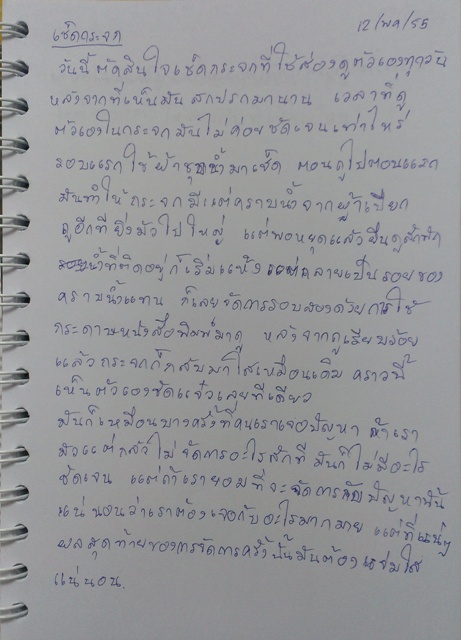 เช็ดกระจก
12/พค/55
วันนี้ตัดสินใจเช็ดกระจกที่ใช้ส่องดูตัวเองทุกวัน
หลังจากที่เห็นมันสกปรกมานาน เวลาที่ดู
ตัวเองในกระจกมันไม่ค่อยชัดเจนเท่าไหร่
รอบแรกใช้ผ้าชุบน้ำมาเช็ด ตอนถูไปตอนแรก
มันทำให้กระจกมีแต่คราบน้ำจากผ้าเปียก
ถูอีกที่ยิ่งมัวไปใหญ่ แต่พอหยุดแล้วยืนดูสักพัก
น้ำที่ติดอยู่ก็เริ่มแห้ง แต่กลายเป็นรอยของ
คราบน้ำแทน ก็เลยจัดการรอบสองด้วยการใช้
กระดาษหนังสือพิมพ์มาถู หลังจากถูเรียบร้อย
แล้วกระจกก็กลับมาใสเหมือนเดิม คราวนี้
เห็นตัวเองชัดแจ๋วเลยทีเดียว
มันก็เหมือนบางครั้งที่คนเราเจอปัญหา ถ้าเรา
มัวแต่กลัวไม่จัดการอะไรสักที มันก็ไม่มีอะไร
ชัดเจน แต่ถ้าเรายอมที่จะจัดการกับปัญหานั้น
แน่นอนว่าเราต้องเจอกับอะไรมากมาย แต่ที่แน่ๆ
ผลสุดท้ายของการจัดการครั้งนั้นมันต้องแจ่มใส
แน่นอน.